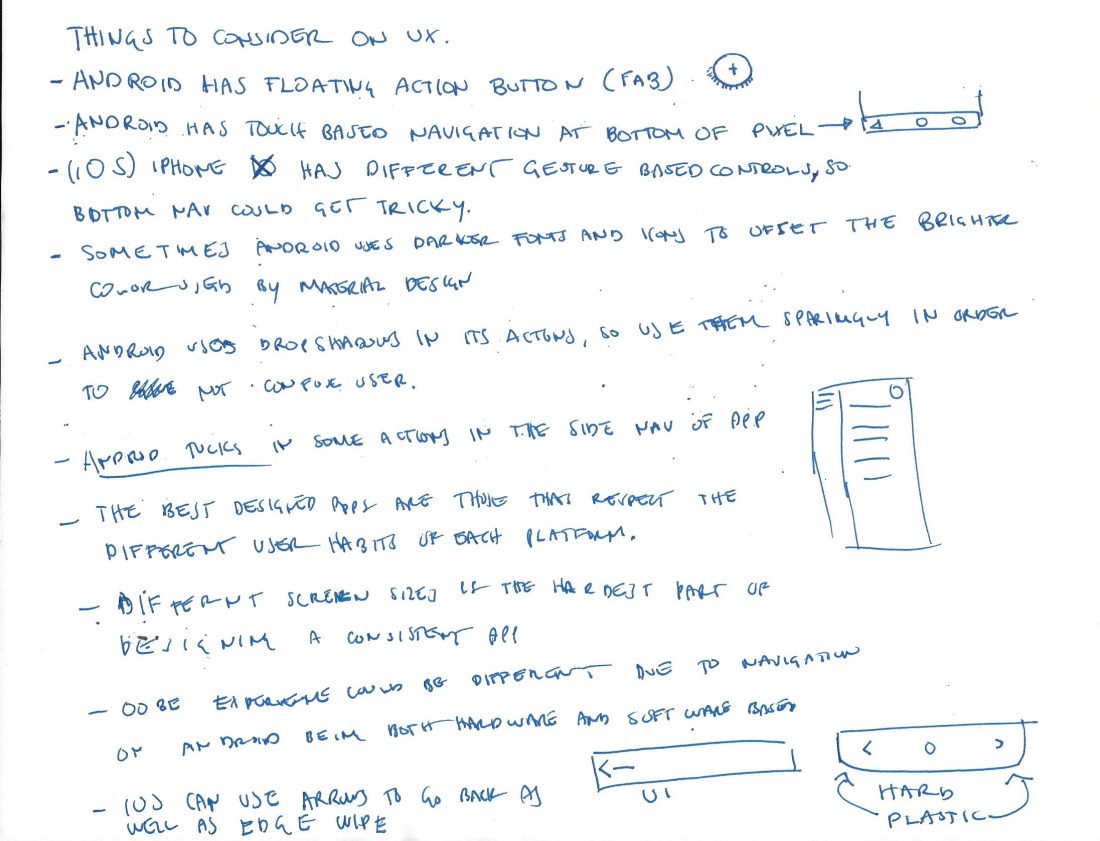 THINGS TO CONSIDER ON UX.
- ANDROID HAS FLOATING ACTION BUTTON (FAB). +
- ANDROID HAS TOUCH BASED NAVIGATION AT BOTTOM OF PIXEL →
- (iOS) IPHONE X HAS DIFFERENT GESTURE BASED CONTROLS, SO
BOTTOM NAV COULD GET TRICKY.
- SOMETIMES ANDROID USES DARKER FONTS AND ICONS TO OFFSET THE BRIGHTER
COLOR USED BY MATERIAL DESIGN
- ANDROID USES DROPSHADOWS IN ITS ACTIONS, SO USE THEM SPARINGLY IN ORDER
TO NOT CONFUSE USER.
- ANDROID TUCKS IN SOME ACTIONS IN THE SIDE NAV OF APP
- THE BEST DESIGNED APPS ARE THOSE THAT RESPECT THE
DIFFERENT USER HABITS OF EACH PLATFORM.
- DIFFERENT SCREEN SIZES IS THE HARDEST PART OF
DESIGNING A CONSISTENT APP
- OOBE EXPERIENCE COULD BE DIFFERENT DUE TO NAVIGATION
ON ANDROID BEING BOTH HARDWARE AND SOFTWARE BASED
- IOS CAN USE ARROWS TO GO BACK AS
WELL AS EDGE WIPE
←
UI
< O >
HARD
PLASTIC